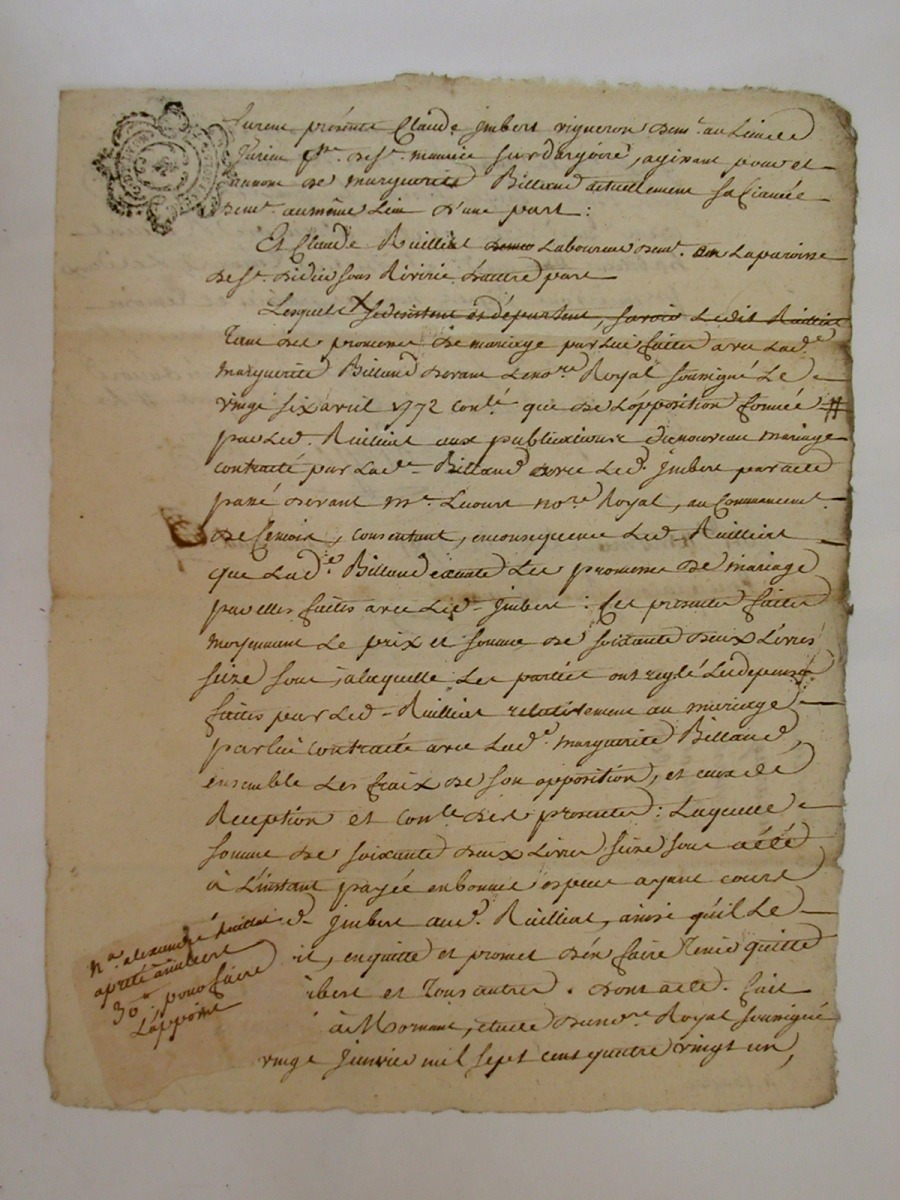 furent présents Claude Imbert vigneron demt. au Lieu de
furieu psse. de St. maurice sur dargoire, agissant pour et
aunom de marguerite Billaud actuellement sa fiancée
demt. aumême Lieu d'une part :
Et Claude Rullliat Laboureur demt. en La paroisse
de St. didier sous Riverie d'autre part
Lesquels se desistent et départent, savoir Ledit Rulliat
tant des promesses de mariage par Lui faites avec Lade.
marguerite Billaud devant Le nore. Royal soussigné Le
vingt six avril 1772 conlé. que de L'opposition formée #
par Led. Rulliat aux publications du nouveau mariage
contracté par Lade. Billaud avec Led. Imbert par acte
passé devant me. Lecourt nore. Royal, au Commencemt.
de Cemois, consentant, en consequence Led. Rulliat
que Lade. Billaud exécute Les promesses de mariage
par elles faites avec Led. Imbert : Ces presentes faites
moyennant Le prix et somme de soixante deux Livres
seize sous, a laquelle Les parties ont reglé Les depenses
faites par Led. Rulliat relativement au mariage
par lui contracté avec Lade. marguerite Billaud,
ensemble Les fraix de son opposition, et ceux de
Reception et conle. des presentes : Laquelle
somme de soixante deux Livres seize sous a été
à L'instant payée en bonnes especes ayant cours
d. Imbert aud. Rulliat, ainsi qu'il Le
it, en quitte et promet d'en faire tenir quitte
ibert et tous autres. dont acte. fait
à Mornant, etude dunore. Royal soussigné
vingt Janvier mil sept cent quatre vingt un,
na. alexandre Rulliat
a prété
30 # pour faire
L'appoint